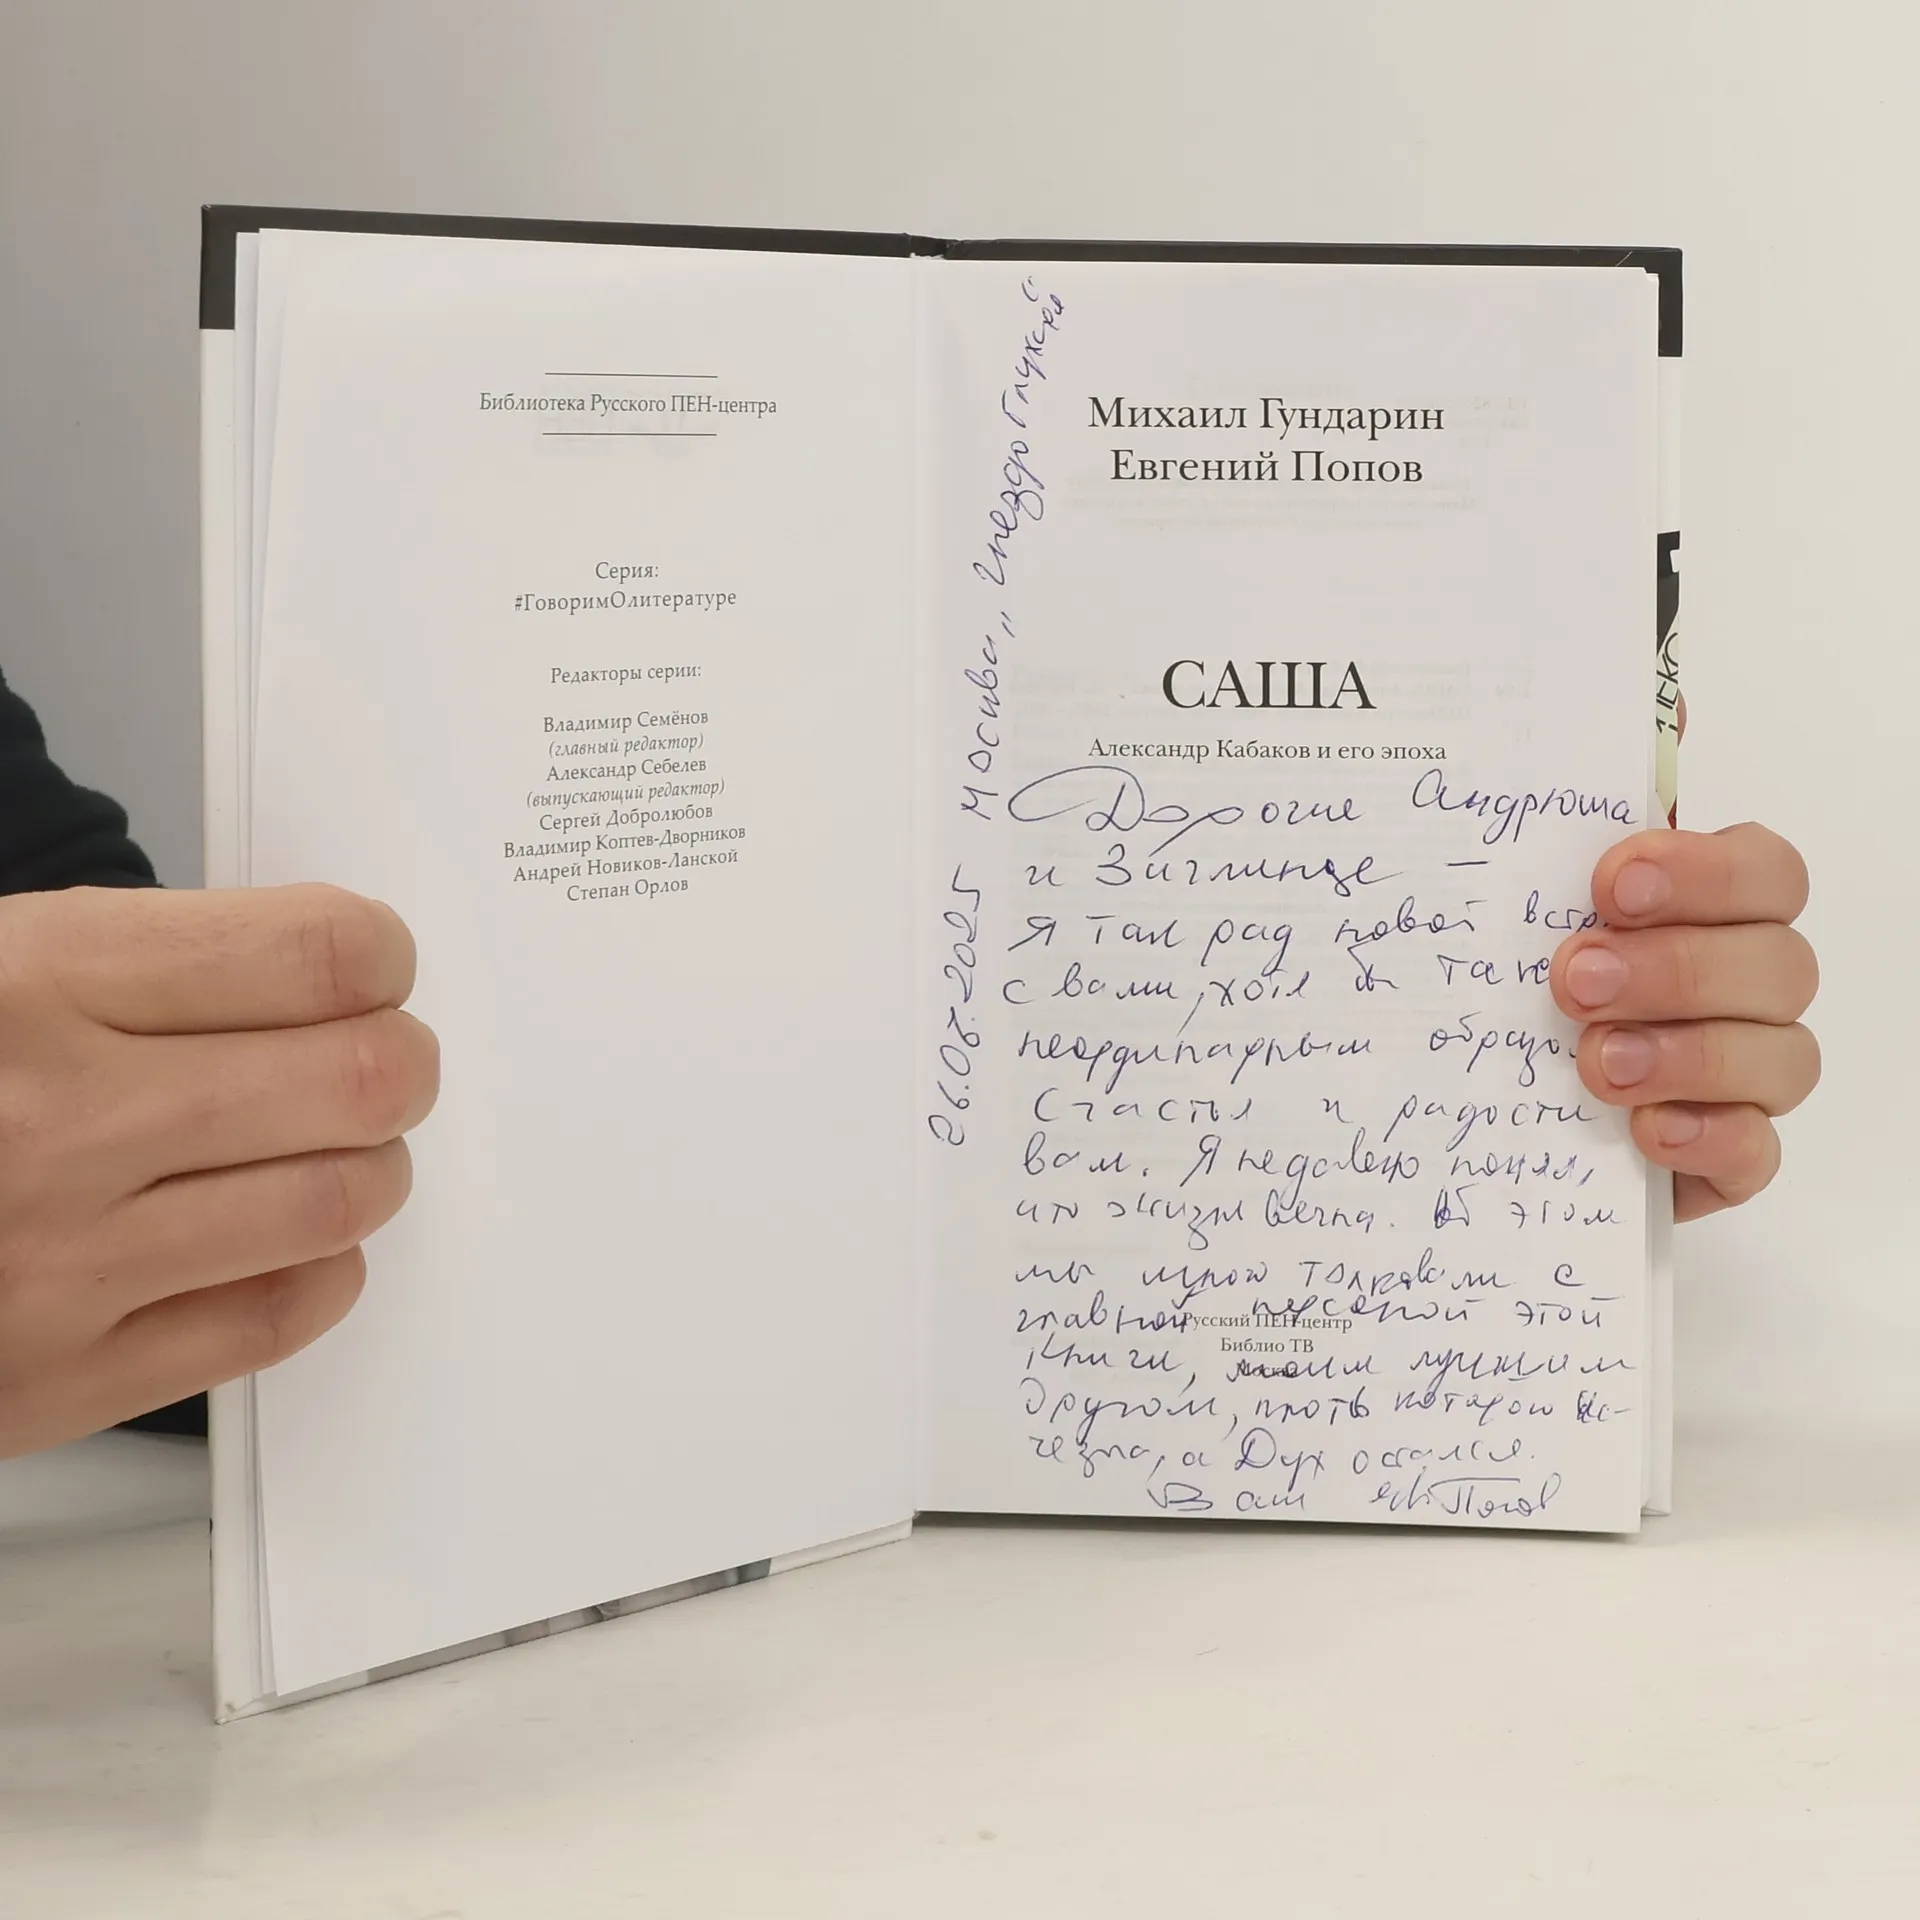 Библиотека Русского ПЕН-центра
Серия:
#ГоворимОлитературе
Редакторы серии:
Владимир Семёнов
(главный редактор)
Александр Себелев
(выпускающий редактор)
Сергей Добролюбов
Владимир Коптев-Дворников
Андрей Новиков-Ланской
Степан Орлов
Михаил Гундарин
Евгений Попов
САША
Александр Кабаков и его эпоха
Дорогие Андрюша
и Зиглинде —
Я так рад новой
с вами, хотя бы
неординарным
Счастья и радости
вам. Я недавно понял,
что жизнь вечна. Об этом
мы много толковали с
главной персоной этой
книги, моим лучшим
другом, плоть которого ис-
чезла, а Дух остался.
Ваш Евг Попов
Русский ПЕН-центр
Библио ТВ
Москва
Москва, „гнездо
2025